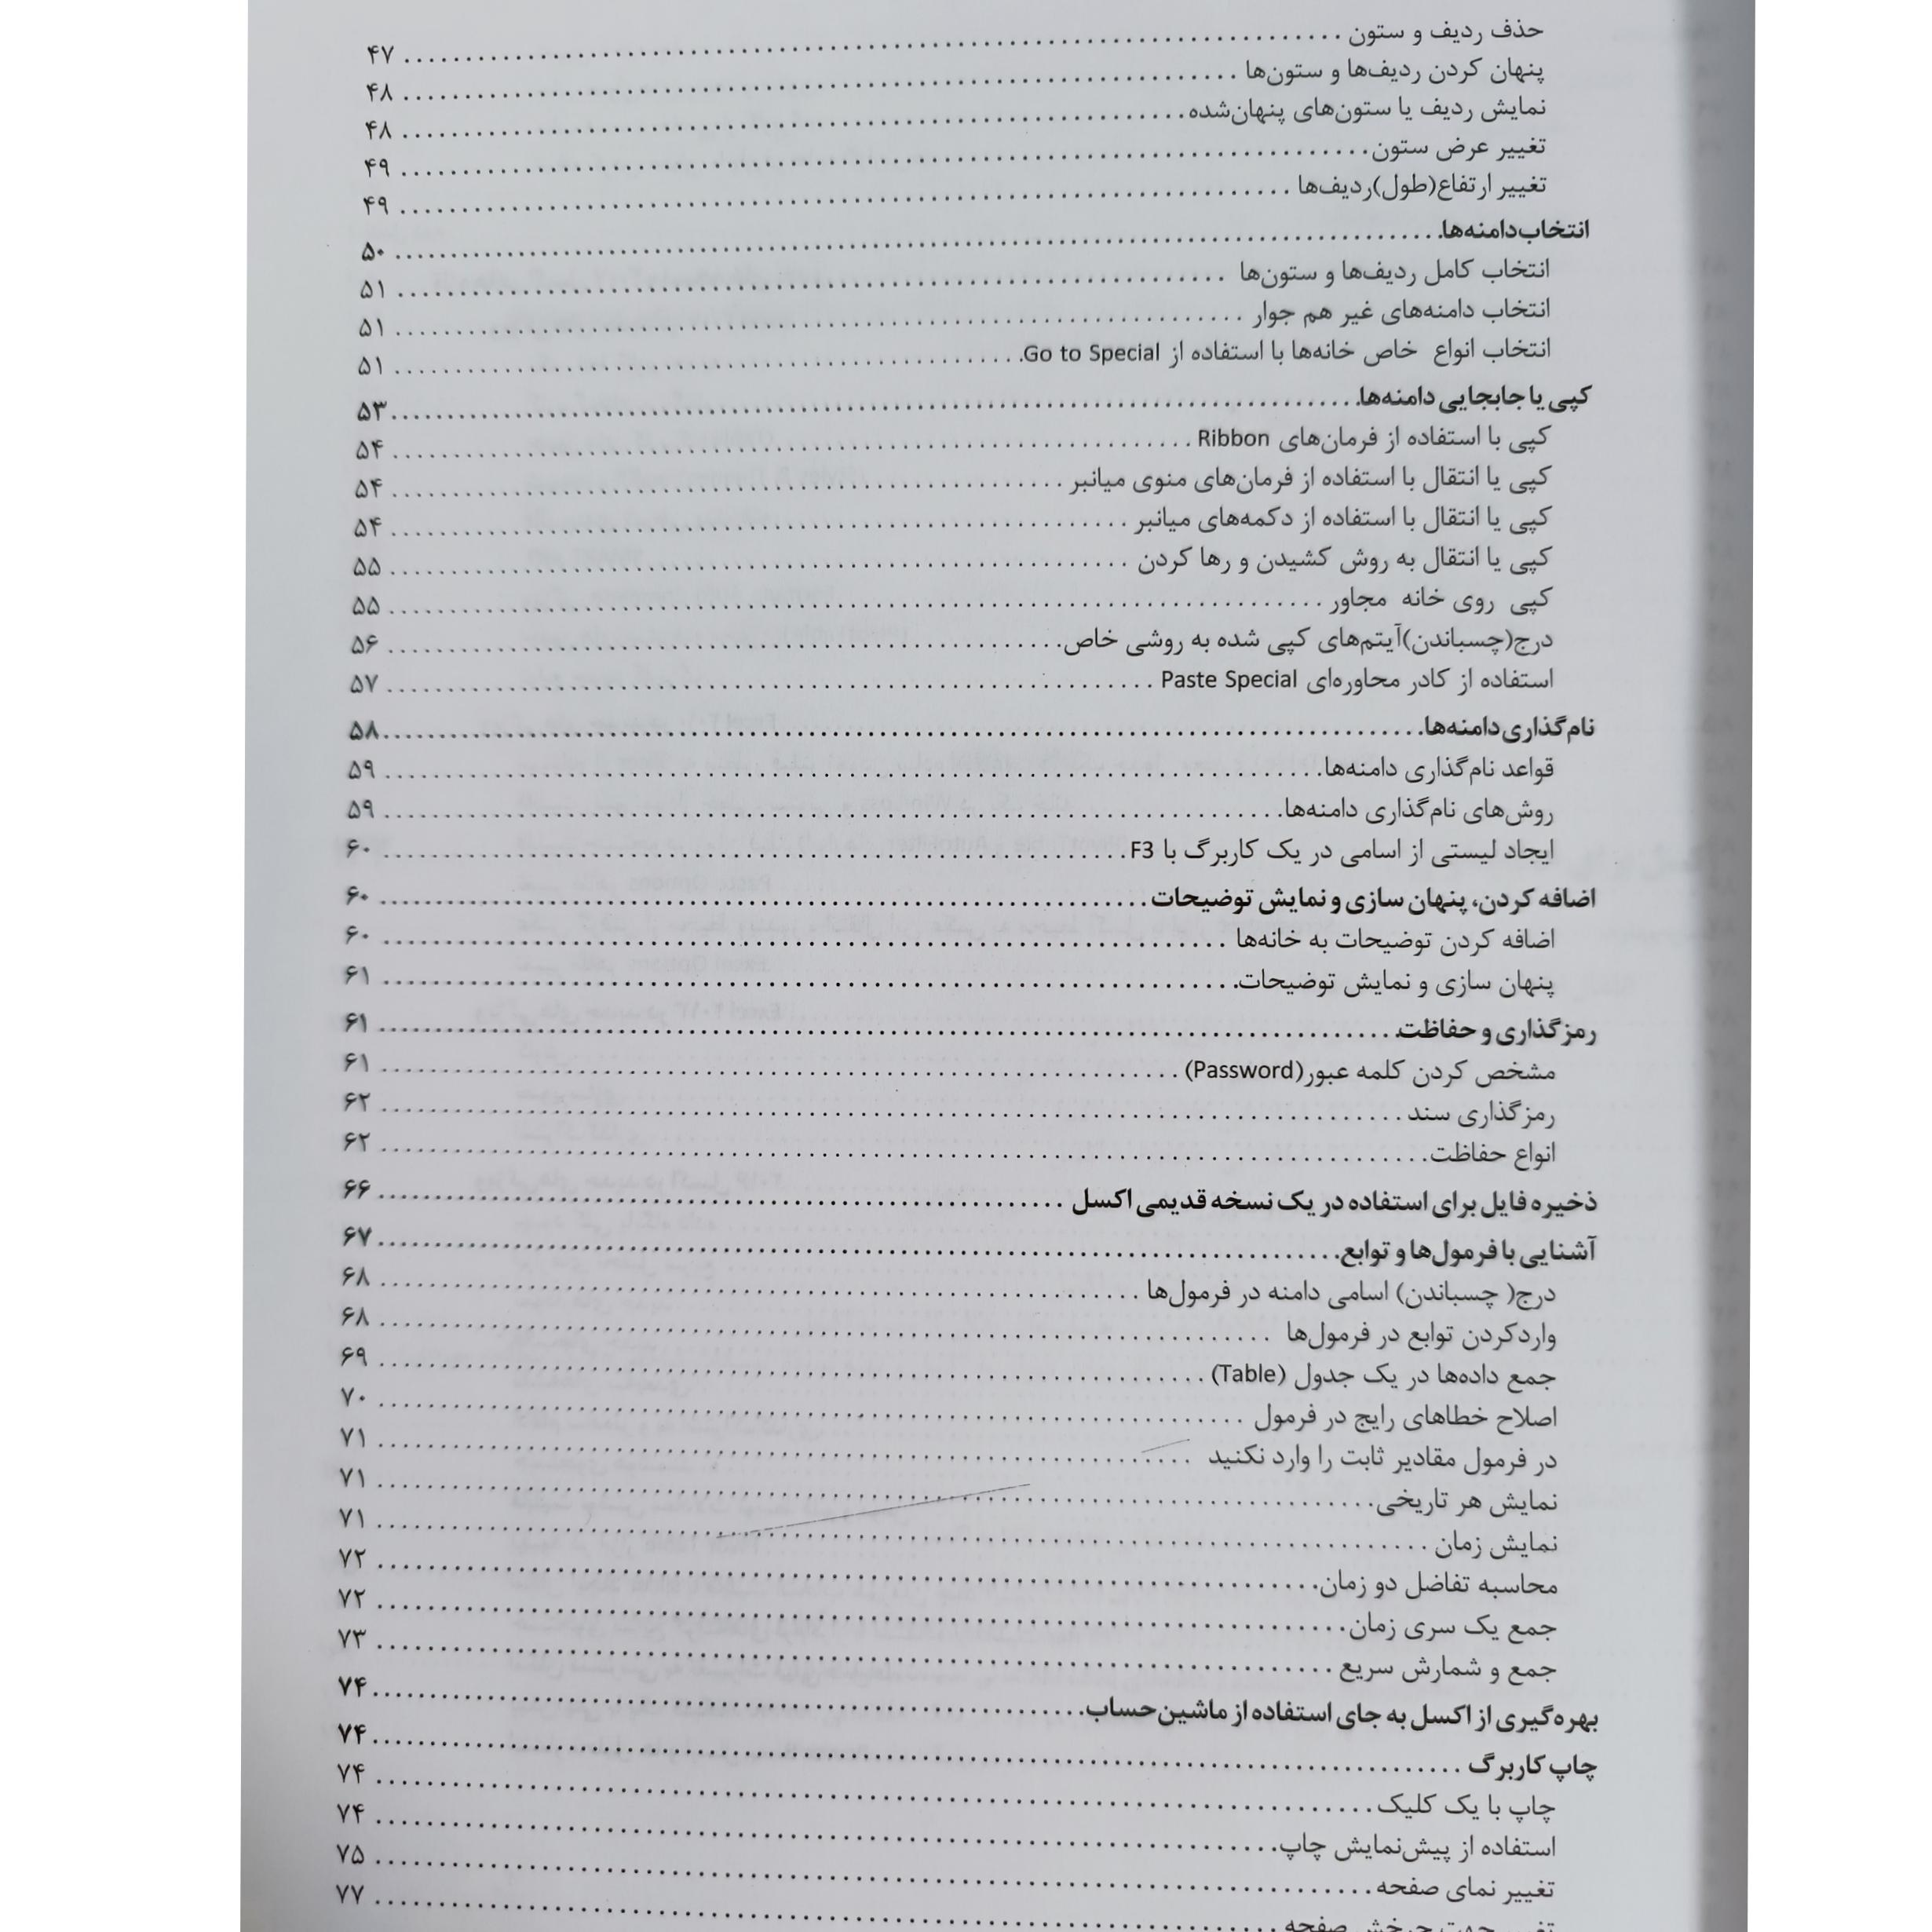 حذف ردیف و ستون ........ ۴۷
پنهان کردن ردیف‌ها و ستون‌ها ........ ۴۸
نمایش ردیف یا ستون‌های پنهان‌شده ........ ۴۸
تغییر عرض ستون ........ ۴۹
تغییر ارتفاع(طول)ردیف‌ها ........ ۴۹
انتخاب دامنه‌ها ........ ۵۰
انتخاب کامل ردیف‌ها و ستون‌ها ........ ۵۱
انتخاب دامنه‌های غیر هم جوار ........ ۵۱
انتخاب انواع خاص خانه‌ها با استفاده از Go to Special ........ ۵۱
کپی یا جابجایی دامنه‌ها ........ ۵۳
کپی با استفاده از فرمان‌های Ribbon ........ ۵۴
کپی یا انتقال با استفاده از فرمان‌های منوی میانبر ........ ۵۴
کپی یا انتقال با استفاده از دکمه‌های میانبر ........ ۵۴
کپی یا انتقال به روش کشیدن و رها کردن ........ ۵۵
کپی روی خانه مجاور ........ ۵۵
درج(چسباندن)آیتم‌های کپی شده به روشی خاص ........ ۵۶
استفاده از کادر محاوره‌ای Paste Special ........ ۵۷
نام‌گذاری دامنه‌ها ........ ۵۸
قواعد نام‌گذاری دامنه‌ها ........ ۵۹
روش‌های نام‌گذاری دامنه‌ها ........ ۵۹
ایجاد لیستی از اسامی در یک کاربرگ با F3 ........ ۶۰
اضافه کردن، پنهان سازی و نمایش توضیحات ........ ۶۰
اضافه کردن توضیحات به خانه‌ها ........ ۶۰
پنهان سازی و نمایش توضیحات ........ ۶۱
رمزگذاری و حفاظت ........ ۶۱
مشخص کردن کلمه عبور(Password) ........ ۶۱
رمزگذاری سند ........ ۶۲
انواع حفاظت ........ ۶۲
ذخیره فایل برای استفاده در یک نسخه قدیمی اکسل ........ ۶۶
آشنایی با فرمول‌ها و توابع ........ ۶۷
درج( چسباندن) اسامی دامنه در فرمول‌ها ........ ۶۸
واردکردن توابع در فرمول‌ها ........ ۶۸
جمع داده‌ها در یک جدول (Table) ........ ۶۹
اصلاح خطاهای رایج در فرمول ........ ۷۰
در فرمول مقادیر ثابت را وارد نکنید ........ ۷۱
نمایش هر تاریخی ........ ۷۱
نمایش زمان ........ ۷۱
محاسبه تفاضل دو زمان ........ ۷۲
جمع یک سری زمان ........ ۷۲
جمع و شمارش سریع ........ ۷۳
بهره‌گیری از اکسل به جای استفاده از ماشین‌حساب ........ ۷۴
چاپ کاربرگ ........ ۷۴
چاپ با یک کلیک ........ ۷۴
استفاده از پیش‌نمایش چاپ ........ ۷۴
تغییر نمای صفحه ........ ۷۵
تغییر جهت چرخش صفحه ........ ۷۷